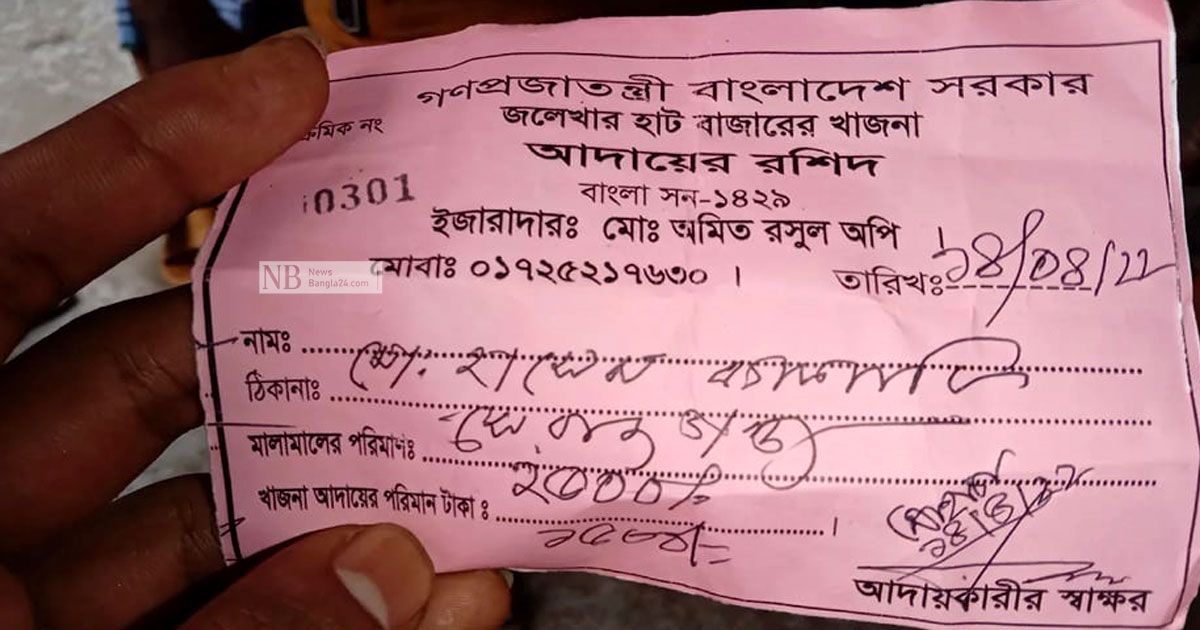 গণপ্রজাতন্ত্রী বাংলাদেশ সরকার
জলেখার হাট বাজারের খাজনা
ক্রমিক নং
আদায়ের রশিদ
0301
বাংলা সন-১৪২৯
ইজারাদারঃ মোঃ অমিত রসুল অপি ।
NB News Bangla24.com
মোবাঃ ০১৭২৫২১৭৬৩০ ।
তারিখঃ ১৪/০৪/২২
নামঃ মো:
ঠিকানাঃ
মালামালের পরিমাণঃ
খাজনা আদায়ের পরিমান টাকা ঃ
আদায়কারীর স্বাক্ষর